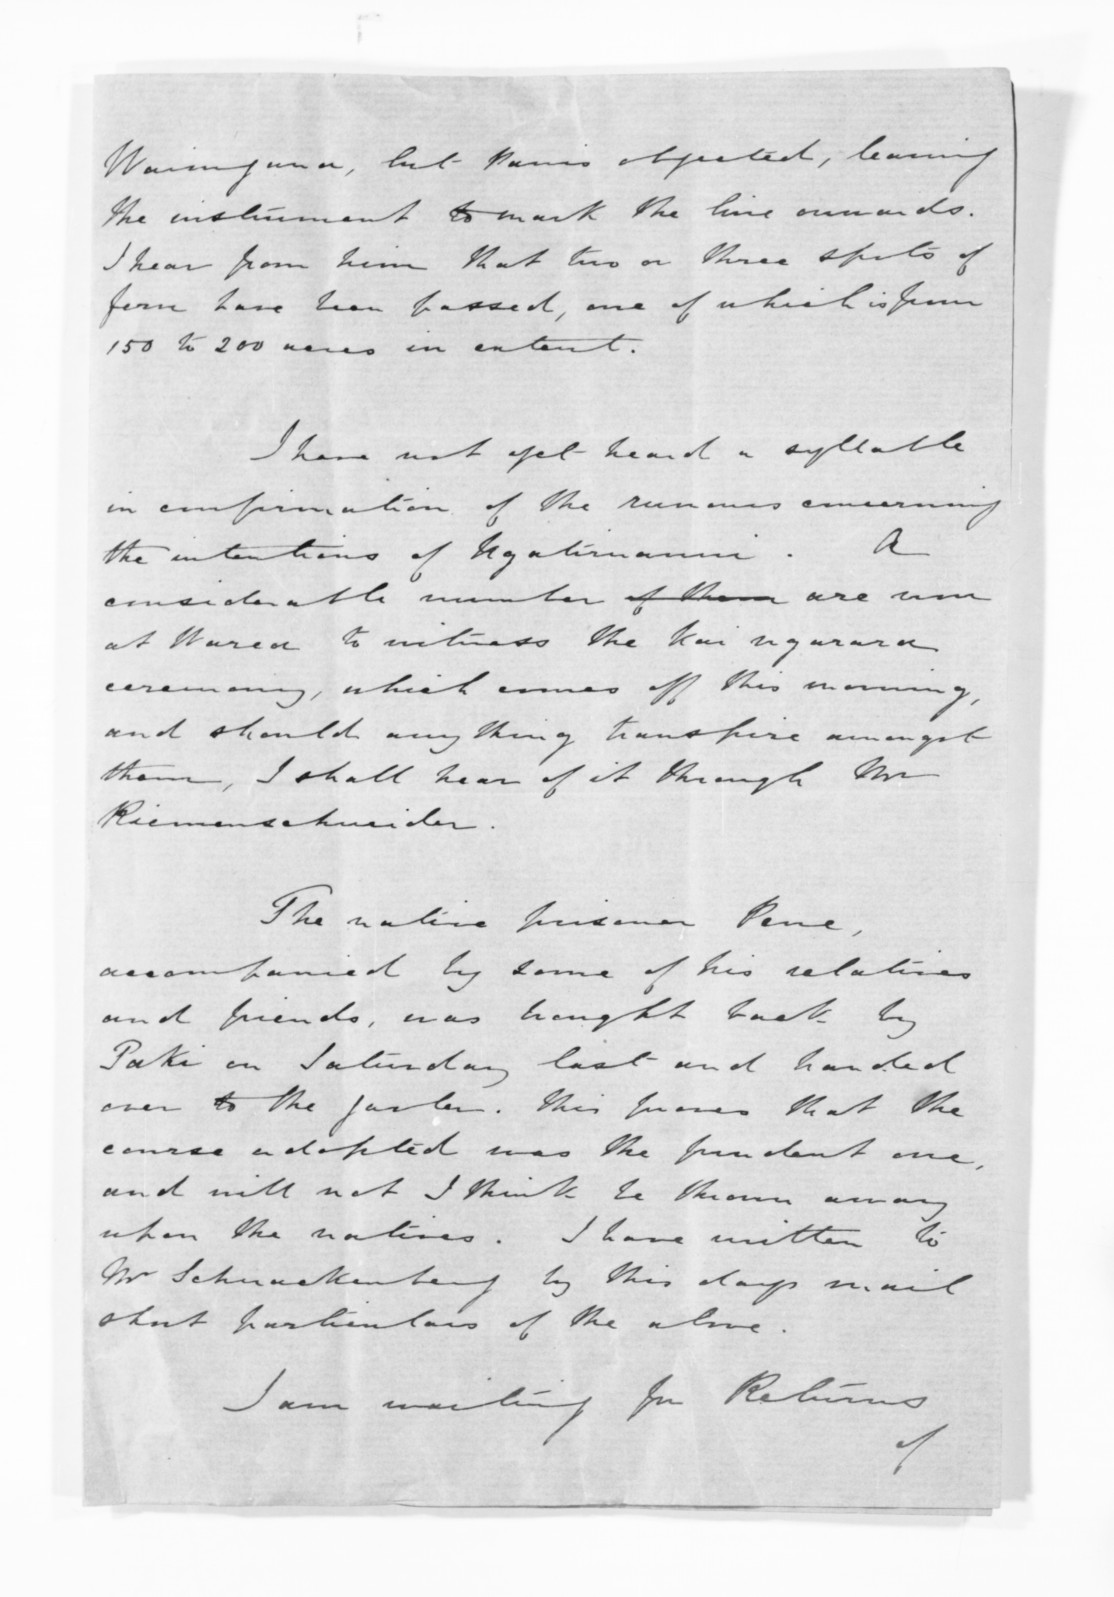 Waiongana, but Parris objected, leaving
the instrument to mark the line onwards.
I hear from him that two or three spots of
fern have been passed, one of which is from
150 to 200 acres in extent.
I have not yet heard a syllable
in confirmation of the rumours concerning
the intentions of Ngatiruanui. A
considerable number of them are now
at Warea to witness the kai ngarara
ceremony, which comes off this morning,
and should anything transpire amongst
them, I shall hear of it through Mr
Riemenschneider.
The native prisoner Pene,
accompanied by some of his relatives
and friends, was brought back by
Poki on Saturday last and handed
over to the jailer. This proves that the
course adopted was the prudent one,
and will not I think be thrown away
upon the natives. I have written to
Mr Schnackenberg by this days mail
short particulars of the above.
I am waiting for Returns
of